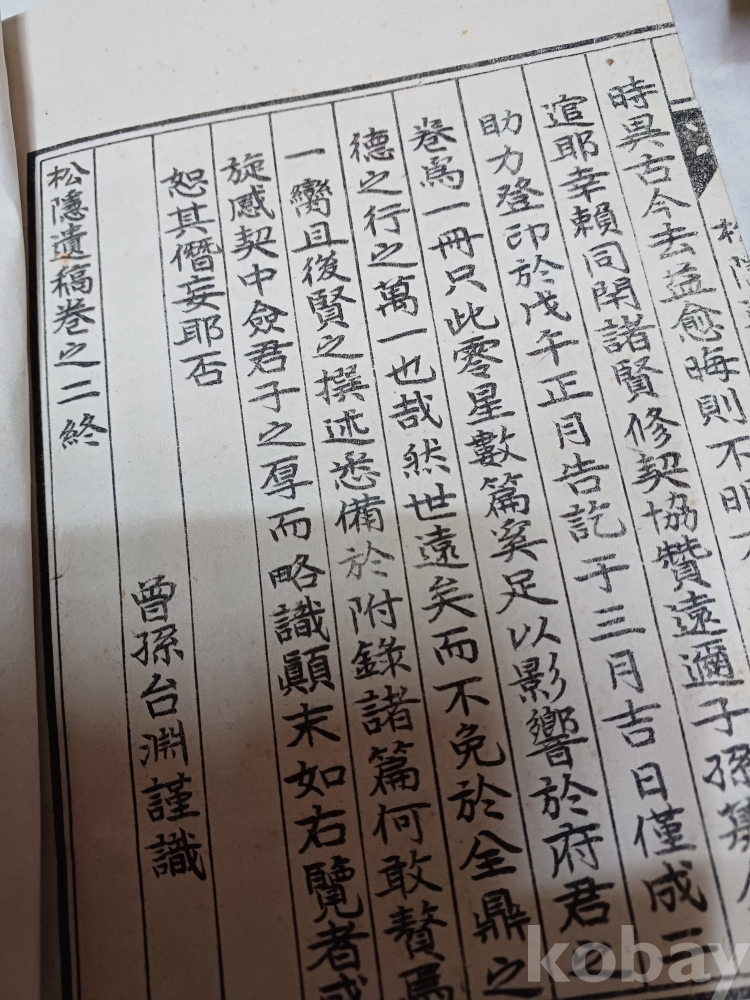 時異古今去益愈晦則不明
逭耶幸賴同閈諸賢修契協贊遠邇子孫
助力登印於戊午正月告訖于三月吉日僅成二
卷爲一冊只此零星數篇奚足以影響於府君之
德之行之萬一也哉然世遠矣而不免於全鼎之
一臠且後賢之撰述悉備於附錄諸篇何敢贅爲
旋感契中僉君子之厚而略識顚末如右覽者或
恕其僭妄耶否
曾孫台淵謹識
松隱遺稿卷之二終
kobay